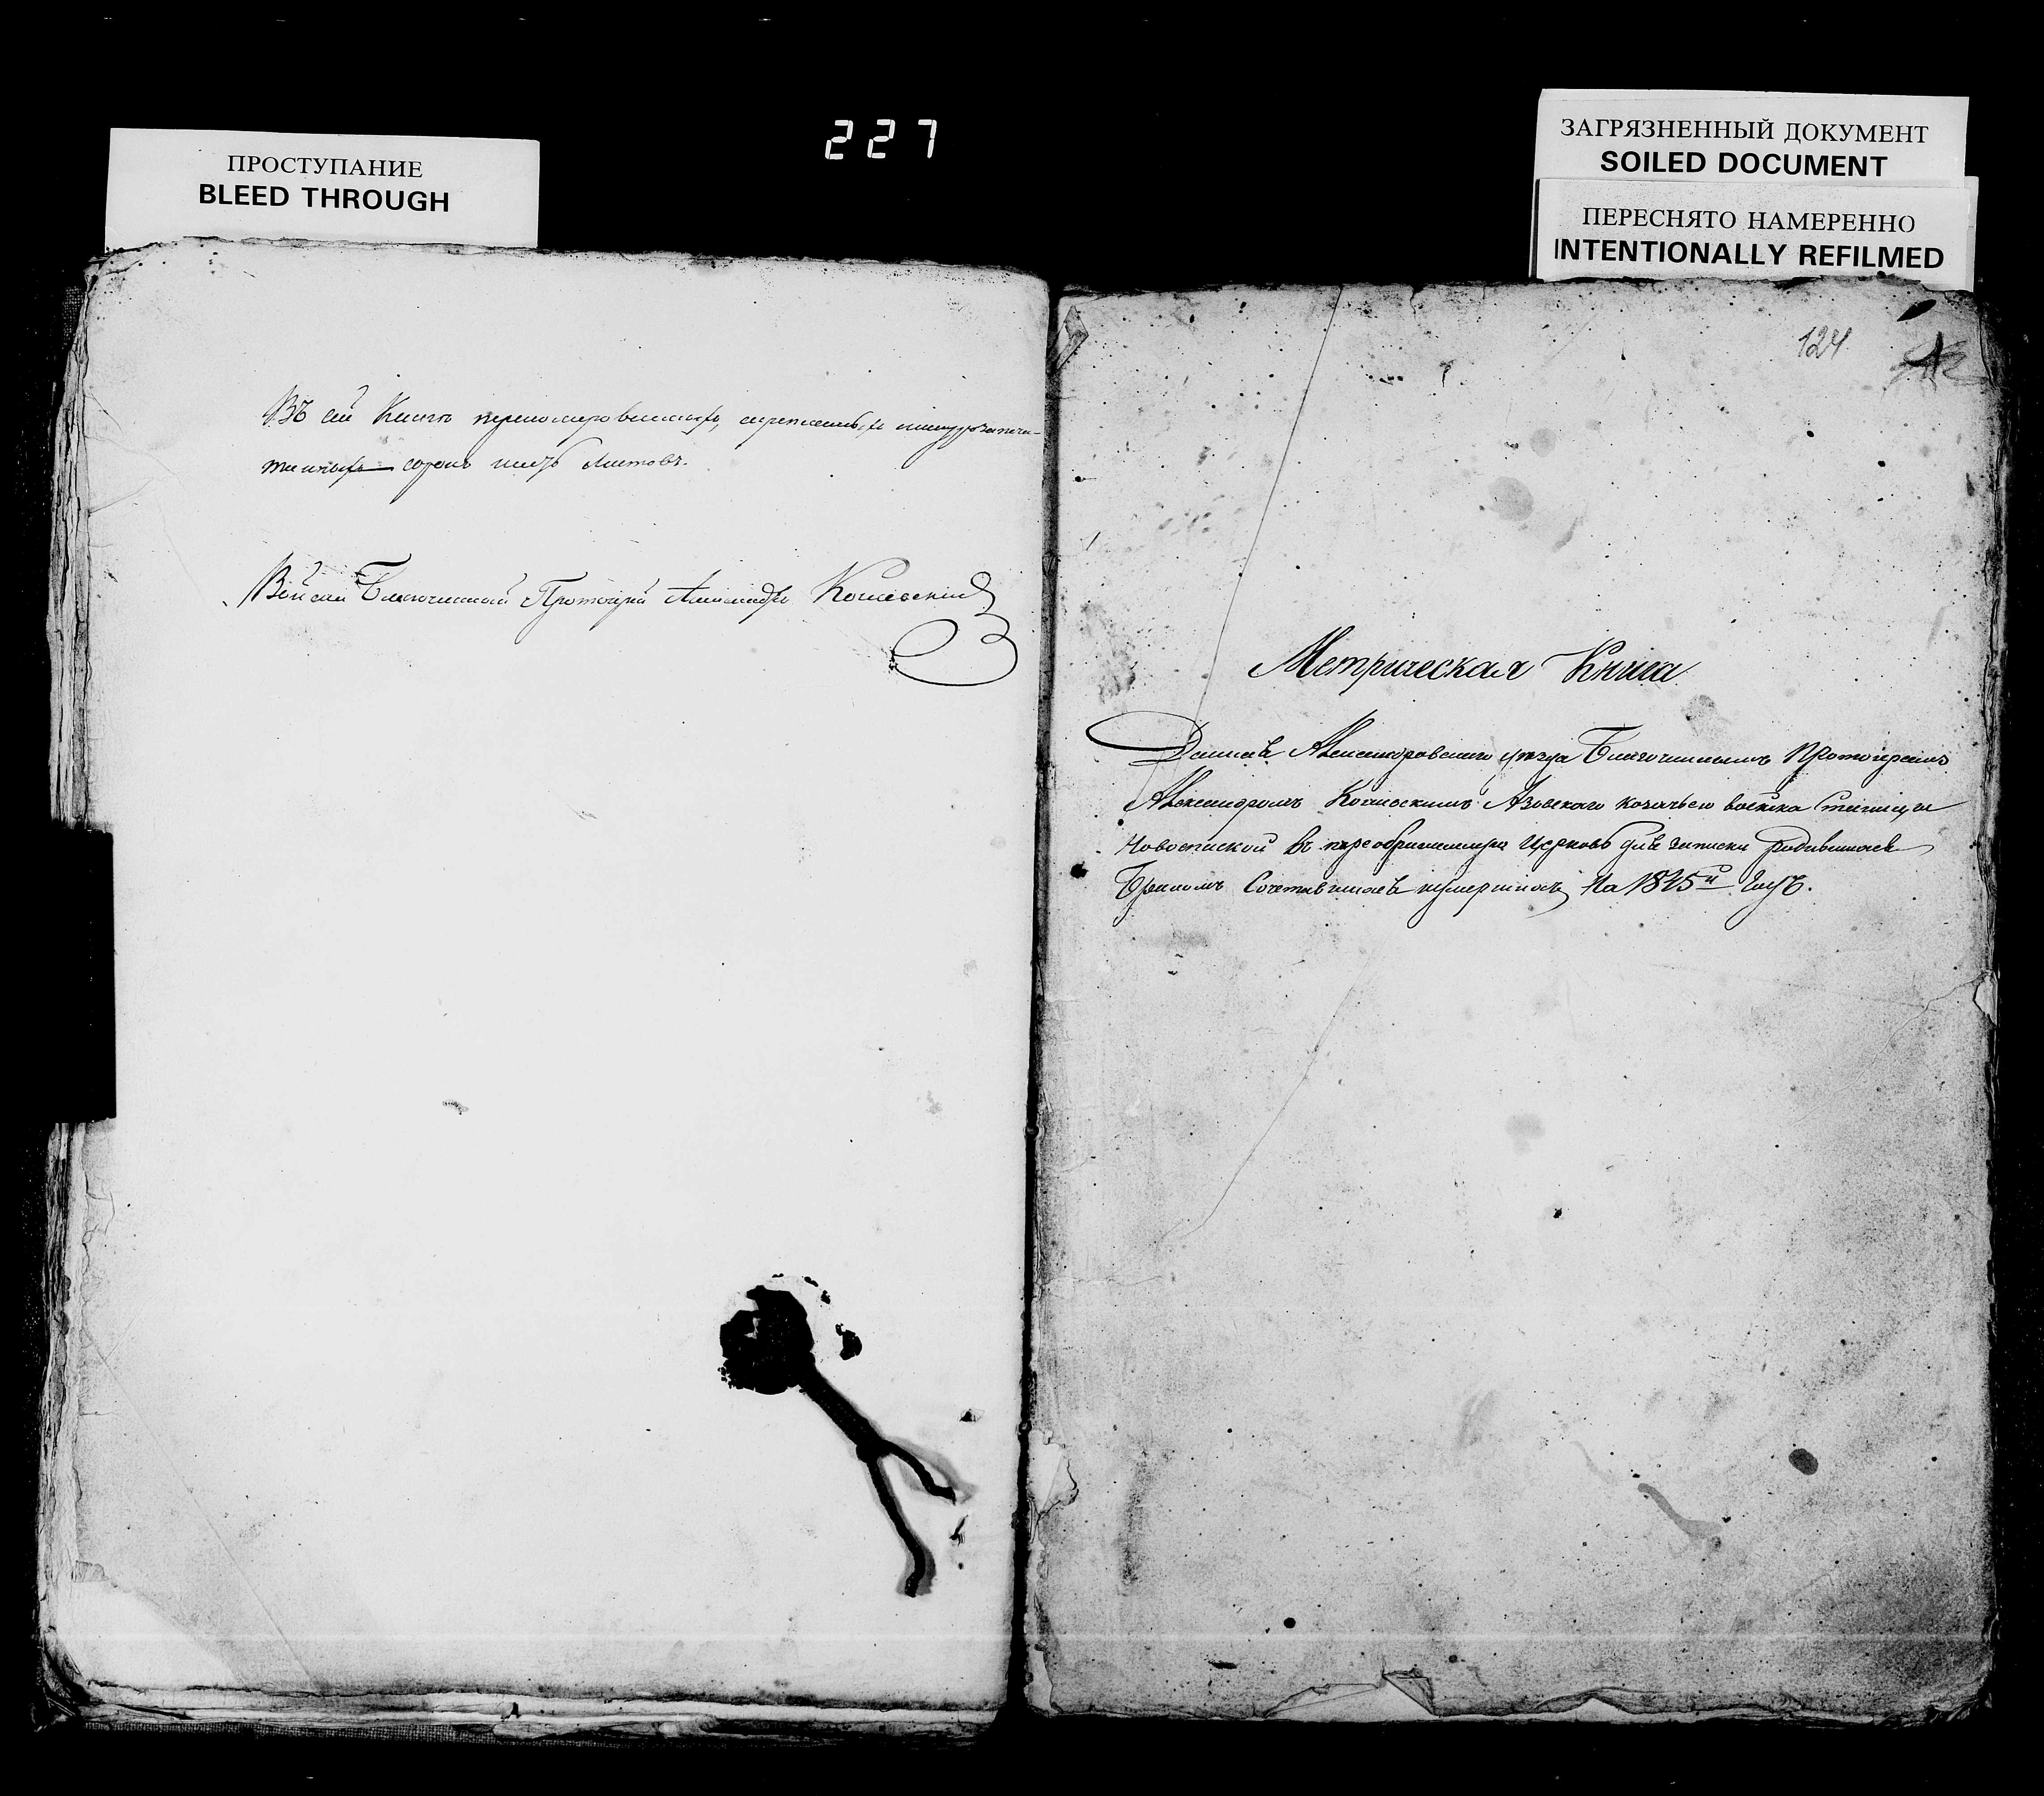 227
ПРОСТУПАНИЕ
BLEED THROUGH
ЗАГРЯЗНЕННЫЙ ДОКУМЕНТ
SOILED DOCUMENT
ПЕРЕСНЯТО НАМЕРЕННО
INTENTIONALLY REFILMED
Въ сей Книгѣ перномерованныхъ, скрепленныхъ и шнурозапеча-
танныхъ сорокъ шесть листовъ.
Благочинный Протоіерей Александръ
124
Метрическая Книга
Данная Александровскаго уезда Благочиннымъ Протоіереемъ
Александромъ Азовскаго козачьего войска станицы
Новоспаской въ церковь для записки родившихся
Бракомъ Сочетавшихся и умершихъ На 1845й Годъ.